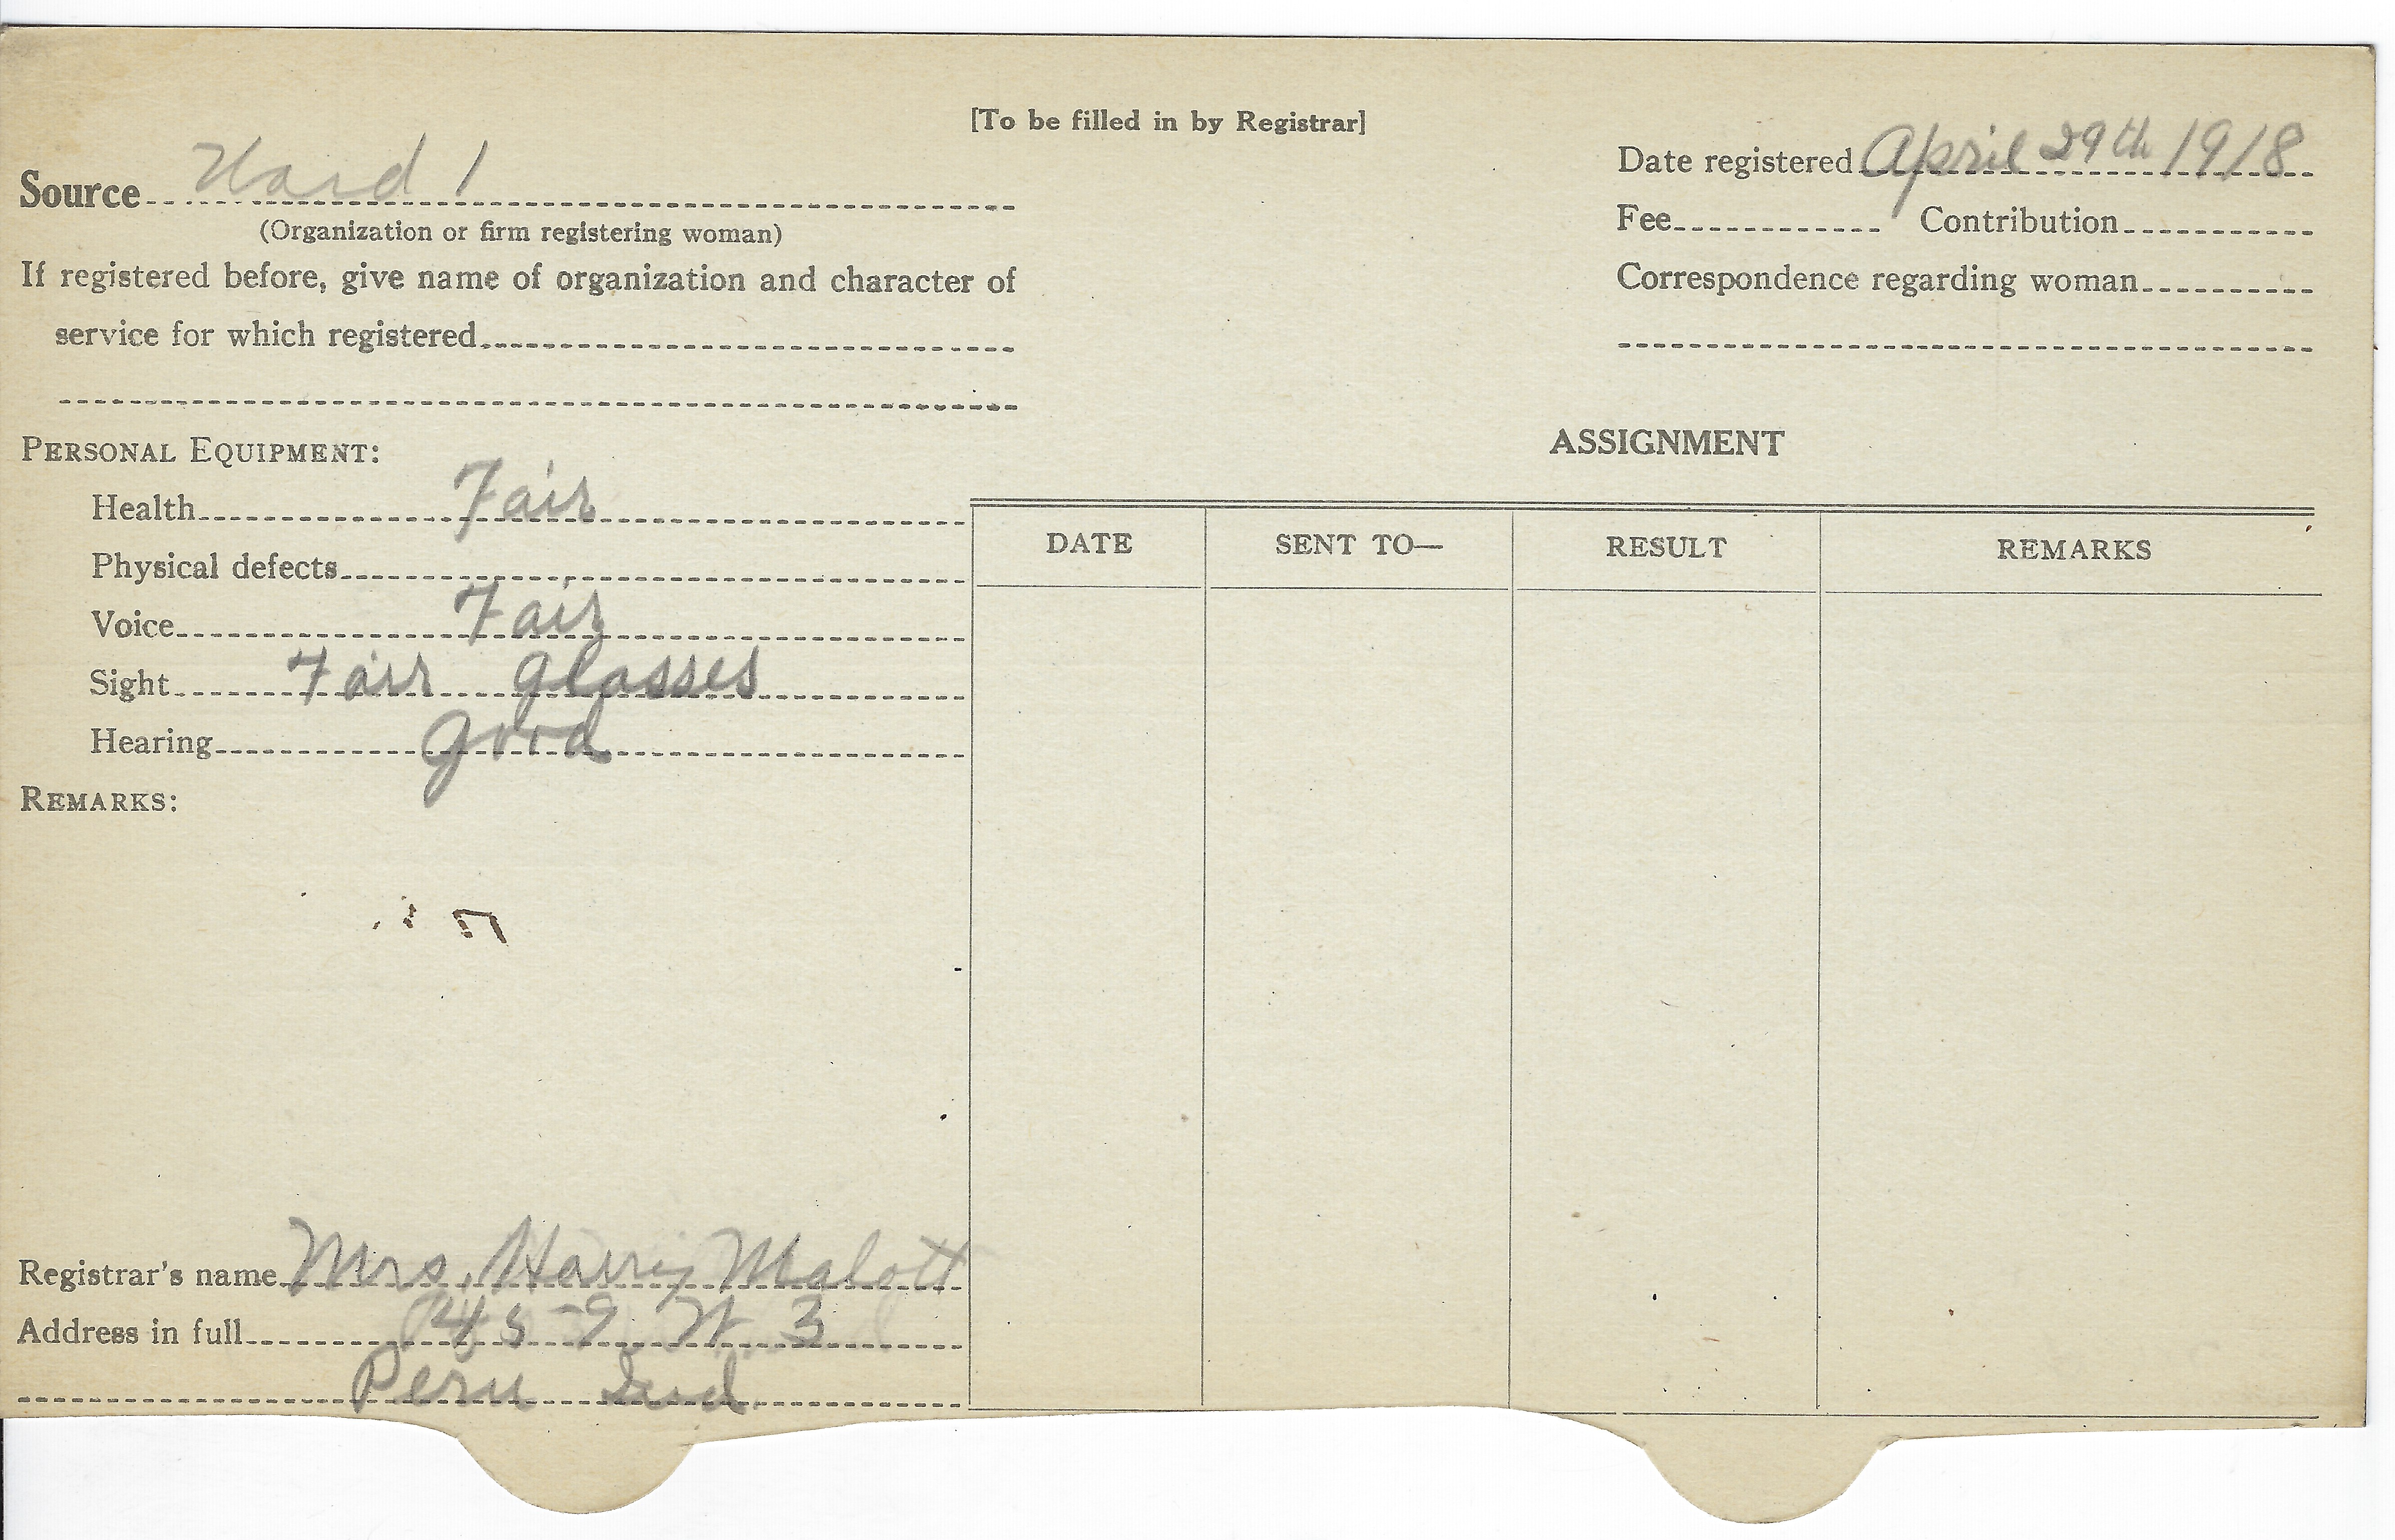 [To be filled in by Registrar]
Source Ward 1
(Organization or firm registering woman)
If registered before, give name of organization and character of
service for which registered
Date registered April 29th 1918
Fee Contribution
Correspondence regarding woman
PERSONAL EQUIPMENT:
Health Fair
Physical defects
Voice Fair
Sight Fair glasses
Hearing good
REMARKS:
ASSIGNMENT
DATE SENT TO— RESULT REMARKS
Registrar's name Mrs. Harry Malott
Address in full W 3
Peru Ind.